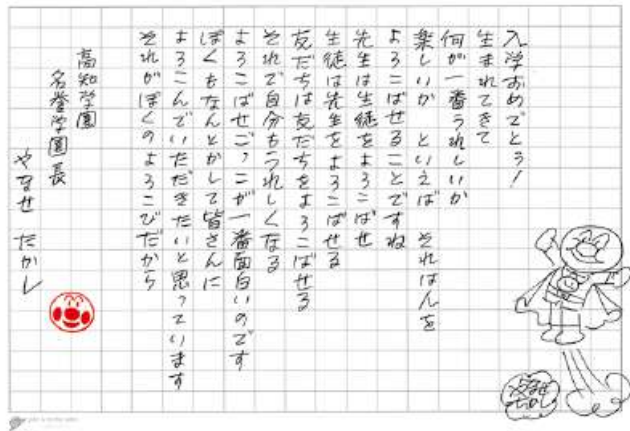 入学おめでとう!
生まれてきて
何が一番うれしいか
楽しいか といえば それは人を
よろこばせることですね
先生は生徒をよろこばせ
生徒は先生をよろこばせる
友だちは友だちをよろこばせる
それで自分もうれしくなる
よろこばせごっこが一番面白いのです
ぼくもなんとかして皆さんに
よろこんでいただきたいと思っています
それがぼくのよろこびだから
高知学園
名誉学園長
やなせ たかし